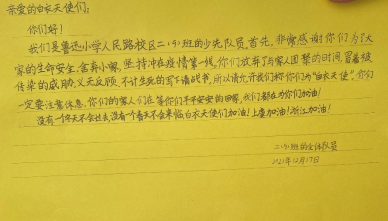 亲爱的白衣天使们:
你们好!
我们是鲁迅小学人民路校区二(5)班的少先队员,首先,非常感谢你们为了大
家的生命安全,舍弃小家,坚持冲在疫情第一线,你们放弃了与家人团聚的时间,冒着被
传染的威胁,义无反顾,不计生死的写下请战书,所以请允许我们称你们为“白衣天使”。你们
一定要注意休息,你们的家人们在等你们平平安安的回家,我们都在为你们加油!
没有一个冬天不会过去,没有一个春天不会来临,白衣天使们加油!上虞加油!浙江加油!
二(5)班的全体队员
2021年12月17日